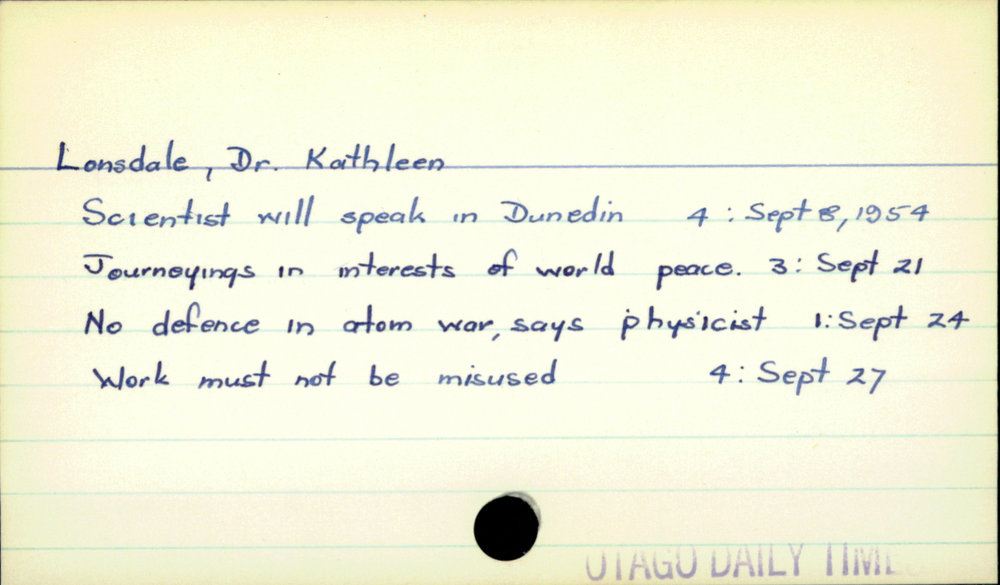 Lonsdale, Dr. Kathleen
Scientist will speak in Dunedin 4 : Sept 8, 1954
Journeyings in interests of world peace. 3: Sept 21
No defence in atom war, says physicist 1: Sept 24
Work must not be misused 4: Sept 27
OTAGO DAILY TIME